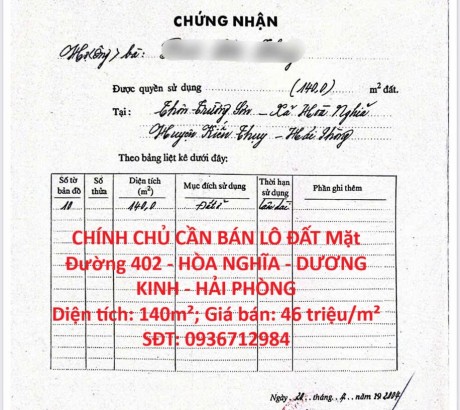 CHỨNG NHẬN
Hộ (ông) bà:
Được quyền sử dụng (140,0) m² đất.
Tại: Thôn Trường Sơn - Xã Hoà Nghĩa
Huyện Kiến Thụy - Hải Phòng
Theo bảng liệt kê dưới đây:
Số tờ bản đồ Số thửa Diện tích (m²) Mục đích sử dụng Thời hạn sử dụng Phần ghi thêm
10 140,0 Đất ở Lâu dài
CHÍNH CHỦ CẦN BÁN LÔ ĐẤT Mặt
Đường 402 - HÒA NGHĨA - DƯƠNG
KINH - HẢI PHÒNG
Diện tích: 140m²; Giá bán: 46 triệu/m²
SĐT: 0936712984
Ngày tháng 4 năm